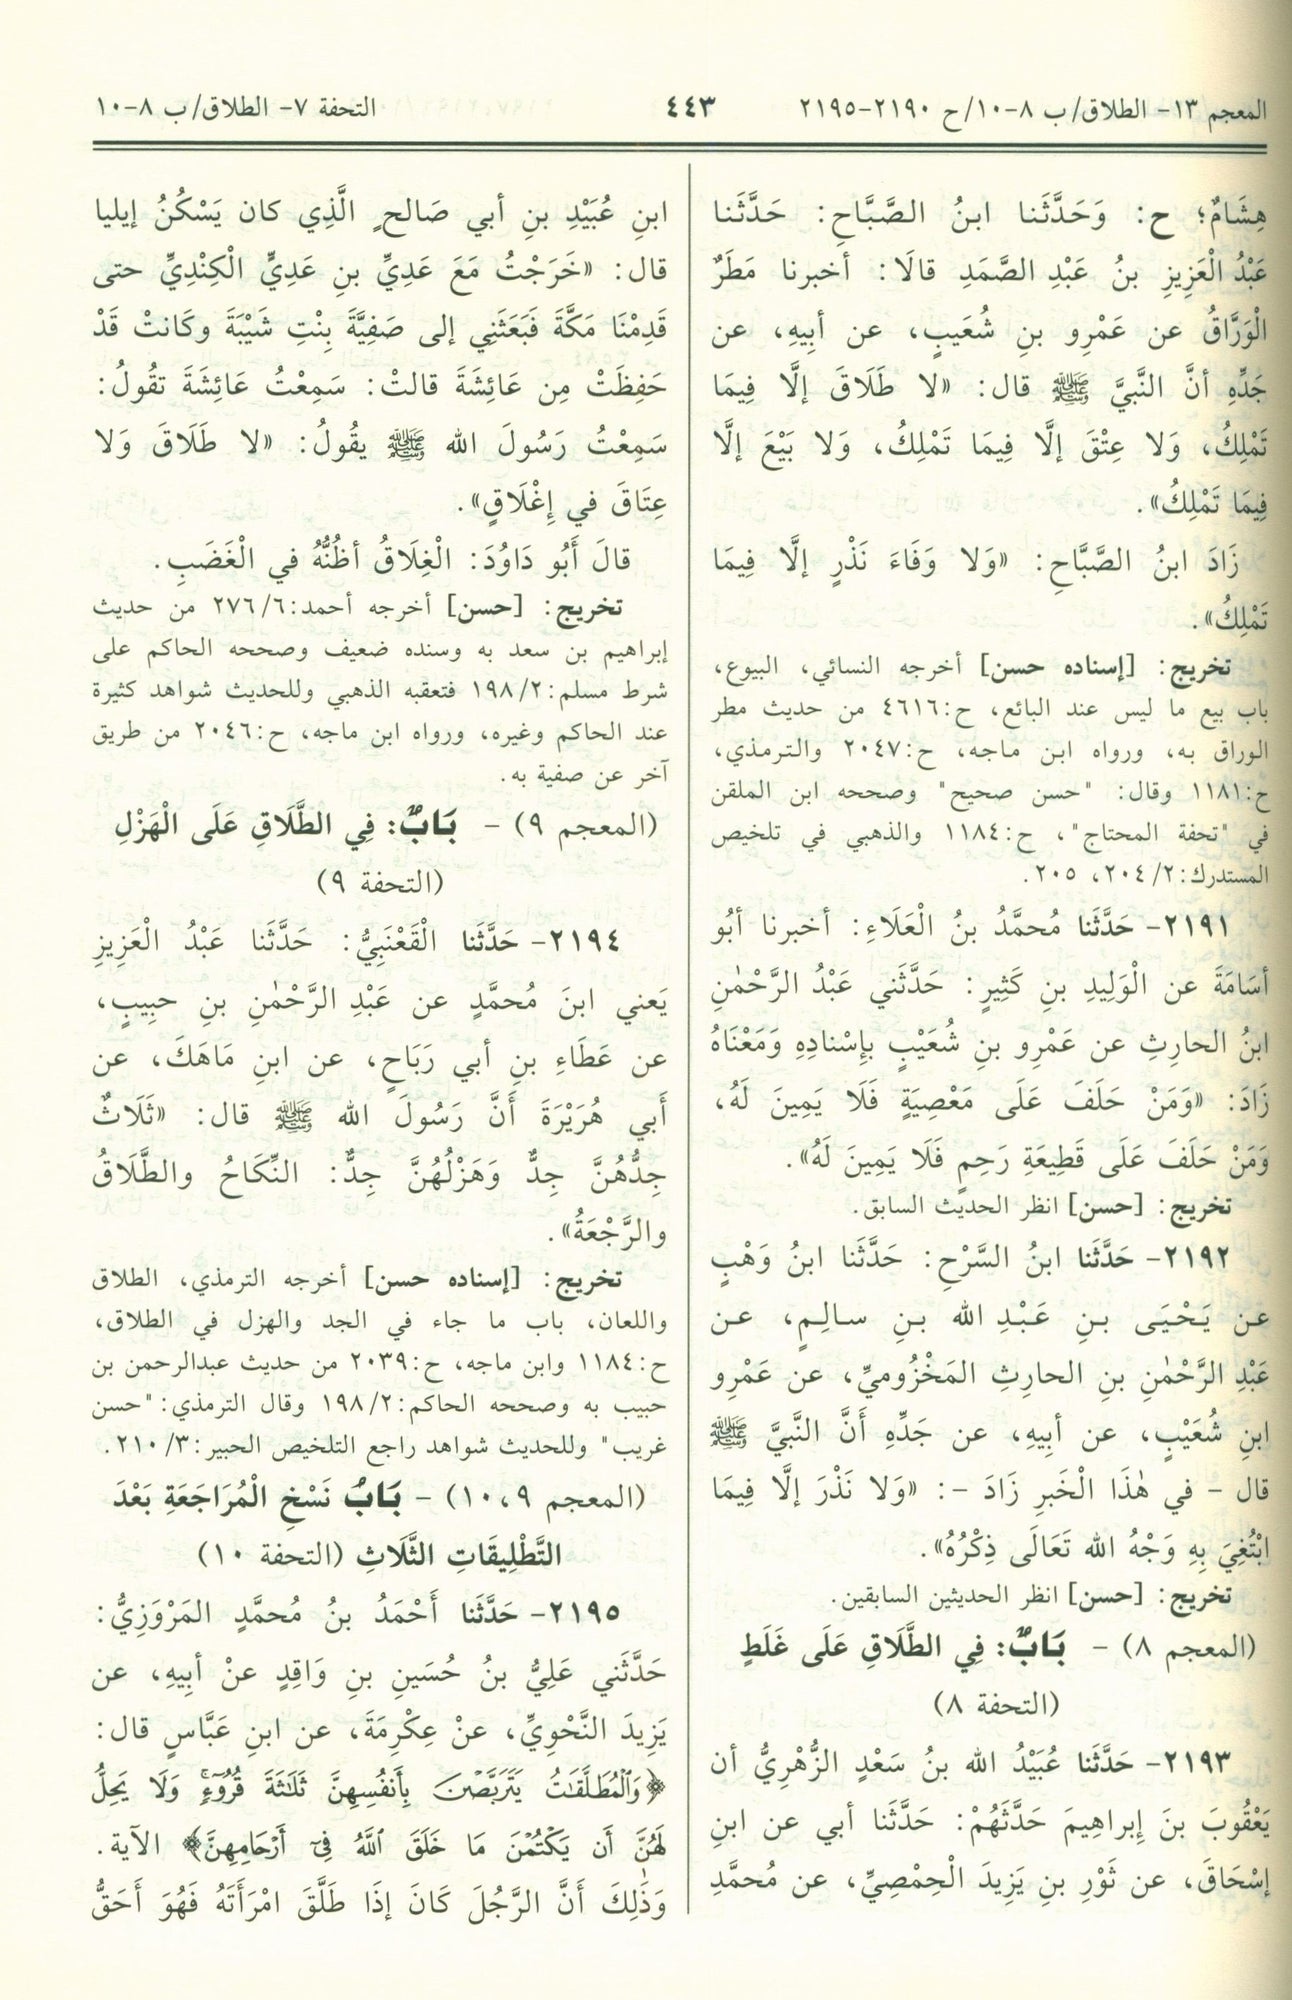 المعجم ١٣- الطلاق/ ب ٨-١٠/ ح ٢١٩٠-٢١٩٥
٤٤٣
التحفة ٧- الطلاق/ ب ٨-١٠
هِشَامٌ؛ ح: وَحَدَّثَنا ابنُ الصَّبَّاحِ: حَدَّثَنا
عَبْدُ الْعَزِيزِ بنُ عَبْدِ الصَّمَدِ قالَا: أخبرنا مَطَرٌ
الْوَرَّاقُ عن عَمْرِو بنِ شُعَيبٍ، عن أبِيهِ، عن
جَدِّهِ أنَّ النَّبيَّ ﷺ قال: «لا طَلَاقَ إلَّا فِيمَا
تَمْلِكُ، وَلا عِتْقَ إلَّا فِيمَا تَمْلِكُ، وَلا بَيْعَ إلَّا
فِيمَا تَمْلِكُ».
زَادَ ابنُ الصَّبَّاحِ: «وَلا وَفَاءَ نَذْرٍ إلَّا فِيمَا
تَمْلِكُ».
تخريج: [إسناده حسن] أخرجه النسائي، البيوع،
باب بيع ما ليس عند البائع، ح:٤٦١٦ من حديث مطر
الوراق به، ورواه ابن ماجه، ح:٢٠٤٧ والترمذي،
ح:١١٨١ وقال: "حسن صحيح" وصححه ابن الملقن
في "تحفة المحتاج"، ح:١١٨٤ والذهبي في تلخيص
المستدرك:٢/ ٢٠٤، ٢٠٥.
٢١٩١- حَدَّثَنا مُحمَّدُ بنُ الْعَلَاءِ: أخبرنا أبُو
أسَامَةَ عن الْوَلِيدِ بنِ كَثِيرٍ: حَدَّثَني عَبْدُ الرَّحْمٰنِ
ابنُ الحارِثِ عن عَمْرِو بنِ شُعَيْبٍ بِإسْنادِهِ وَمَعْنَاهُ
زَادَ: «وَمَنْ حَلَفَ عَلَى مَعْصِيَةٍ فَلَا يَمِينَ لَهُ،
وَمَنْ حَلَفَ عَلَى قَطِيعَةِ رَحِمٍ فَلَا يَمِينَ لَهُ».
تخريج: [حسن] انظر الحديث السابق.
٢١٩٢- حَدَّثَنا ابنُ السَّرْحِ: حَدَّثَنا ابنُ وَهْبٍ
عن يَحْيَى بنِ عَبْدِ الله بنِ سالِمٍ، عن
عَبْدِ الرَّحْمٰنِ بنِ الحارِثِ المَخْزُوميِّ، عن عَمْرِو
ابنِ شُعَيْبٍ، عن أبِيهِ، عن جَدِّهِ أنَّ النَّبيَّ ﷺ
قال - في هٰذَا الْخَبرِ زَادَ -: «وَلا نَذْرَ إلَّا فِيمَا
ابْتُغِيَ بِهِ وَجْهُ الله تَعَالَى ذِكْرُهُ».
تخريج: [حسن] انظر الحديثين السابقين.
(المعجم ٨) - بَابٌ: فِي الطَّلَاقِ عَلَى غَلَطٍ
(التحفة ٨)
٢١٩٣- حَدَّثَنا عُبَيْدُ الله بنُ سَعْدٍ الزُّهْرِيُّ أن
يَعْقُوبَ بنَ إبراهِيمَ حَدَّثَهُمْ: حَدَّثَنا أبي عن ابنِ
إسْحَاقَ، عن ثَوْرِ بنِ يَزِيدَ الْحِمْصِيِّ، عن مُحمَّدِ
ابنِ عُبَيْدِ بنِ أبي صَالحٍ الَّذِي كان يَسْكُنُ إيليا
قال: «خَرَجْتُ مَعَ عَدِيِّ بنِ عَدِيٍّ الْكِنْدِيِّ حتى
قَدِمْنَا مَكَّةَ فَبَعَثَنِي إلى صَفِيَّةَ بِنْتِ شَيْبَةَ وكَانتْ قَدْ
حَفِظَتْ مِن عَائِشَةَ قالتْ: سَمِعْتُ عَائِشَةَ تقُولُ:
سَمِعْتُ رَسُولَ الله ﷺ يقُولُ: «لا طَلَاقَ وَلا
عِتَاقَ في إغْلَاقٍ».
قالَ أَبُو دَاوُدَ: الْغِلَاقُ أظُنُّهُ في الْغَضَبِ.
تخريج: [حسن] أخرجه أحمد:٦/ ٢٧٦ من حديث
إبراهيم بن سعد به وسنده ضعيف وصححه الحاكم على
شرط مسلم:٢/ ١٩٨ فتعقبه الذهبي وللحديث شواهد كثيرة
عند الحاكم وغيره، ورواه ابن ماجه، ح:٢٠٤٦ من طريق
آخر عن صفية به.
(المعجم ٩) - بَابٌ: فِي الطَّلَاقِ عَلَى الْهَزْلِ
(التحفة ٩)
٢١٩٤- حَدَّثَنا الْقَعْنَبِيُّ: حَدَّثَنا عَبْدُ الْعَزِيزِ
يَعني ابنَ مُحمَّدٍ عن عَبْدِ الرَّحْمٰنِ بنِ حبِيبٍ،
عن عَطَاءِ بنِ أبي رَبَاحٍ، عن ابنِ مَاهَكَ، عن
أَبي هُرَيْرَةَ أَنَّ رَسُولَ الله ﷺ قال: «ثَلَاثٌ
جِدُّهُنَّ جِدٌّ وَهَزْلُهُنَّ جِدٌّ: النِّكَاحُ والطَّلَاقُ
والرَّجْعَةُ».
تخريج: [إسناده حسن] أخرجه الترمذي، الطلاق
واللعان، باب ما جاء في الجد والهزل في الطلاق،
ح:١١٨٤ وابن ماجه، ح:٢٠٣٩ من حديث عبدالرحمن بن
حبيب به وصححه الحاكم:٢/ ١٩٨ وقال الترمذي:"حسن
غريب" وللحديث شواهد راجع التلخيص الحبير:٣/ ٢١٠.
(المعجم ٩، ١٠) - بَابُ نَسْخِ الْمُرَاجَعَةِ بَعْدَ
التَّطْلِيقَاتِ الثَّلَاثِ (التحفة ١٠)
٢١٩٥- حَدَّثَنا أَحْمَدُ بنُ مُحمَّدٍ المَرْوَزِيُّ:
حَدَّثَني عَلِيُّ بنُ حُسَينِ بنِ وَاقِدٍ عنْ أبِيهِ، عن
يَزِيدَ النَّحْوِيِّ، عنْ عِكْرِمَةَ، عن ابنِ عَبَّاسٍ قال:
﴿وَٱلْمُطَلَّقَٰتُ يَتَرَبَّصْنَ بِأَنفُسِهِنَّ ثَلَٰثَةَ قُرُوٓءٍ ۚ وَلَا يَحِلُّ
لَهُنَّ أَن يَكْتُمْنَ مَا خَلَقَ ٱللَّهُ فِىٓ أَرْحَامِهِنَّ﴾ الآية.
وَذٰلِكَ أَنَّ الرَّجُلَ كَانَ إذَا طَلَّقَ امْرَأَتَهُ فَهُوَ أَحَقُّ